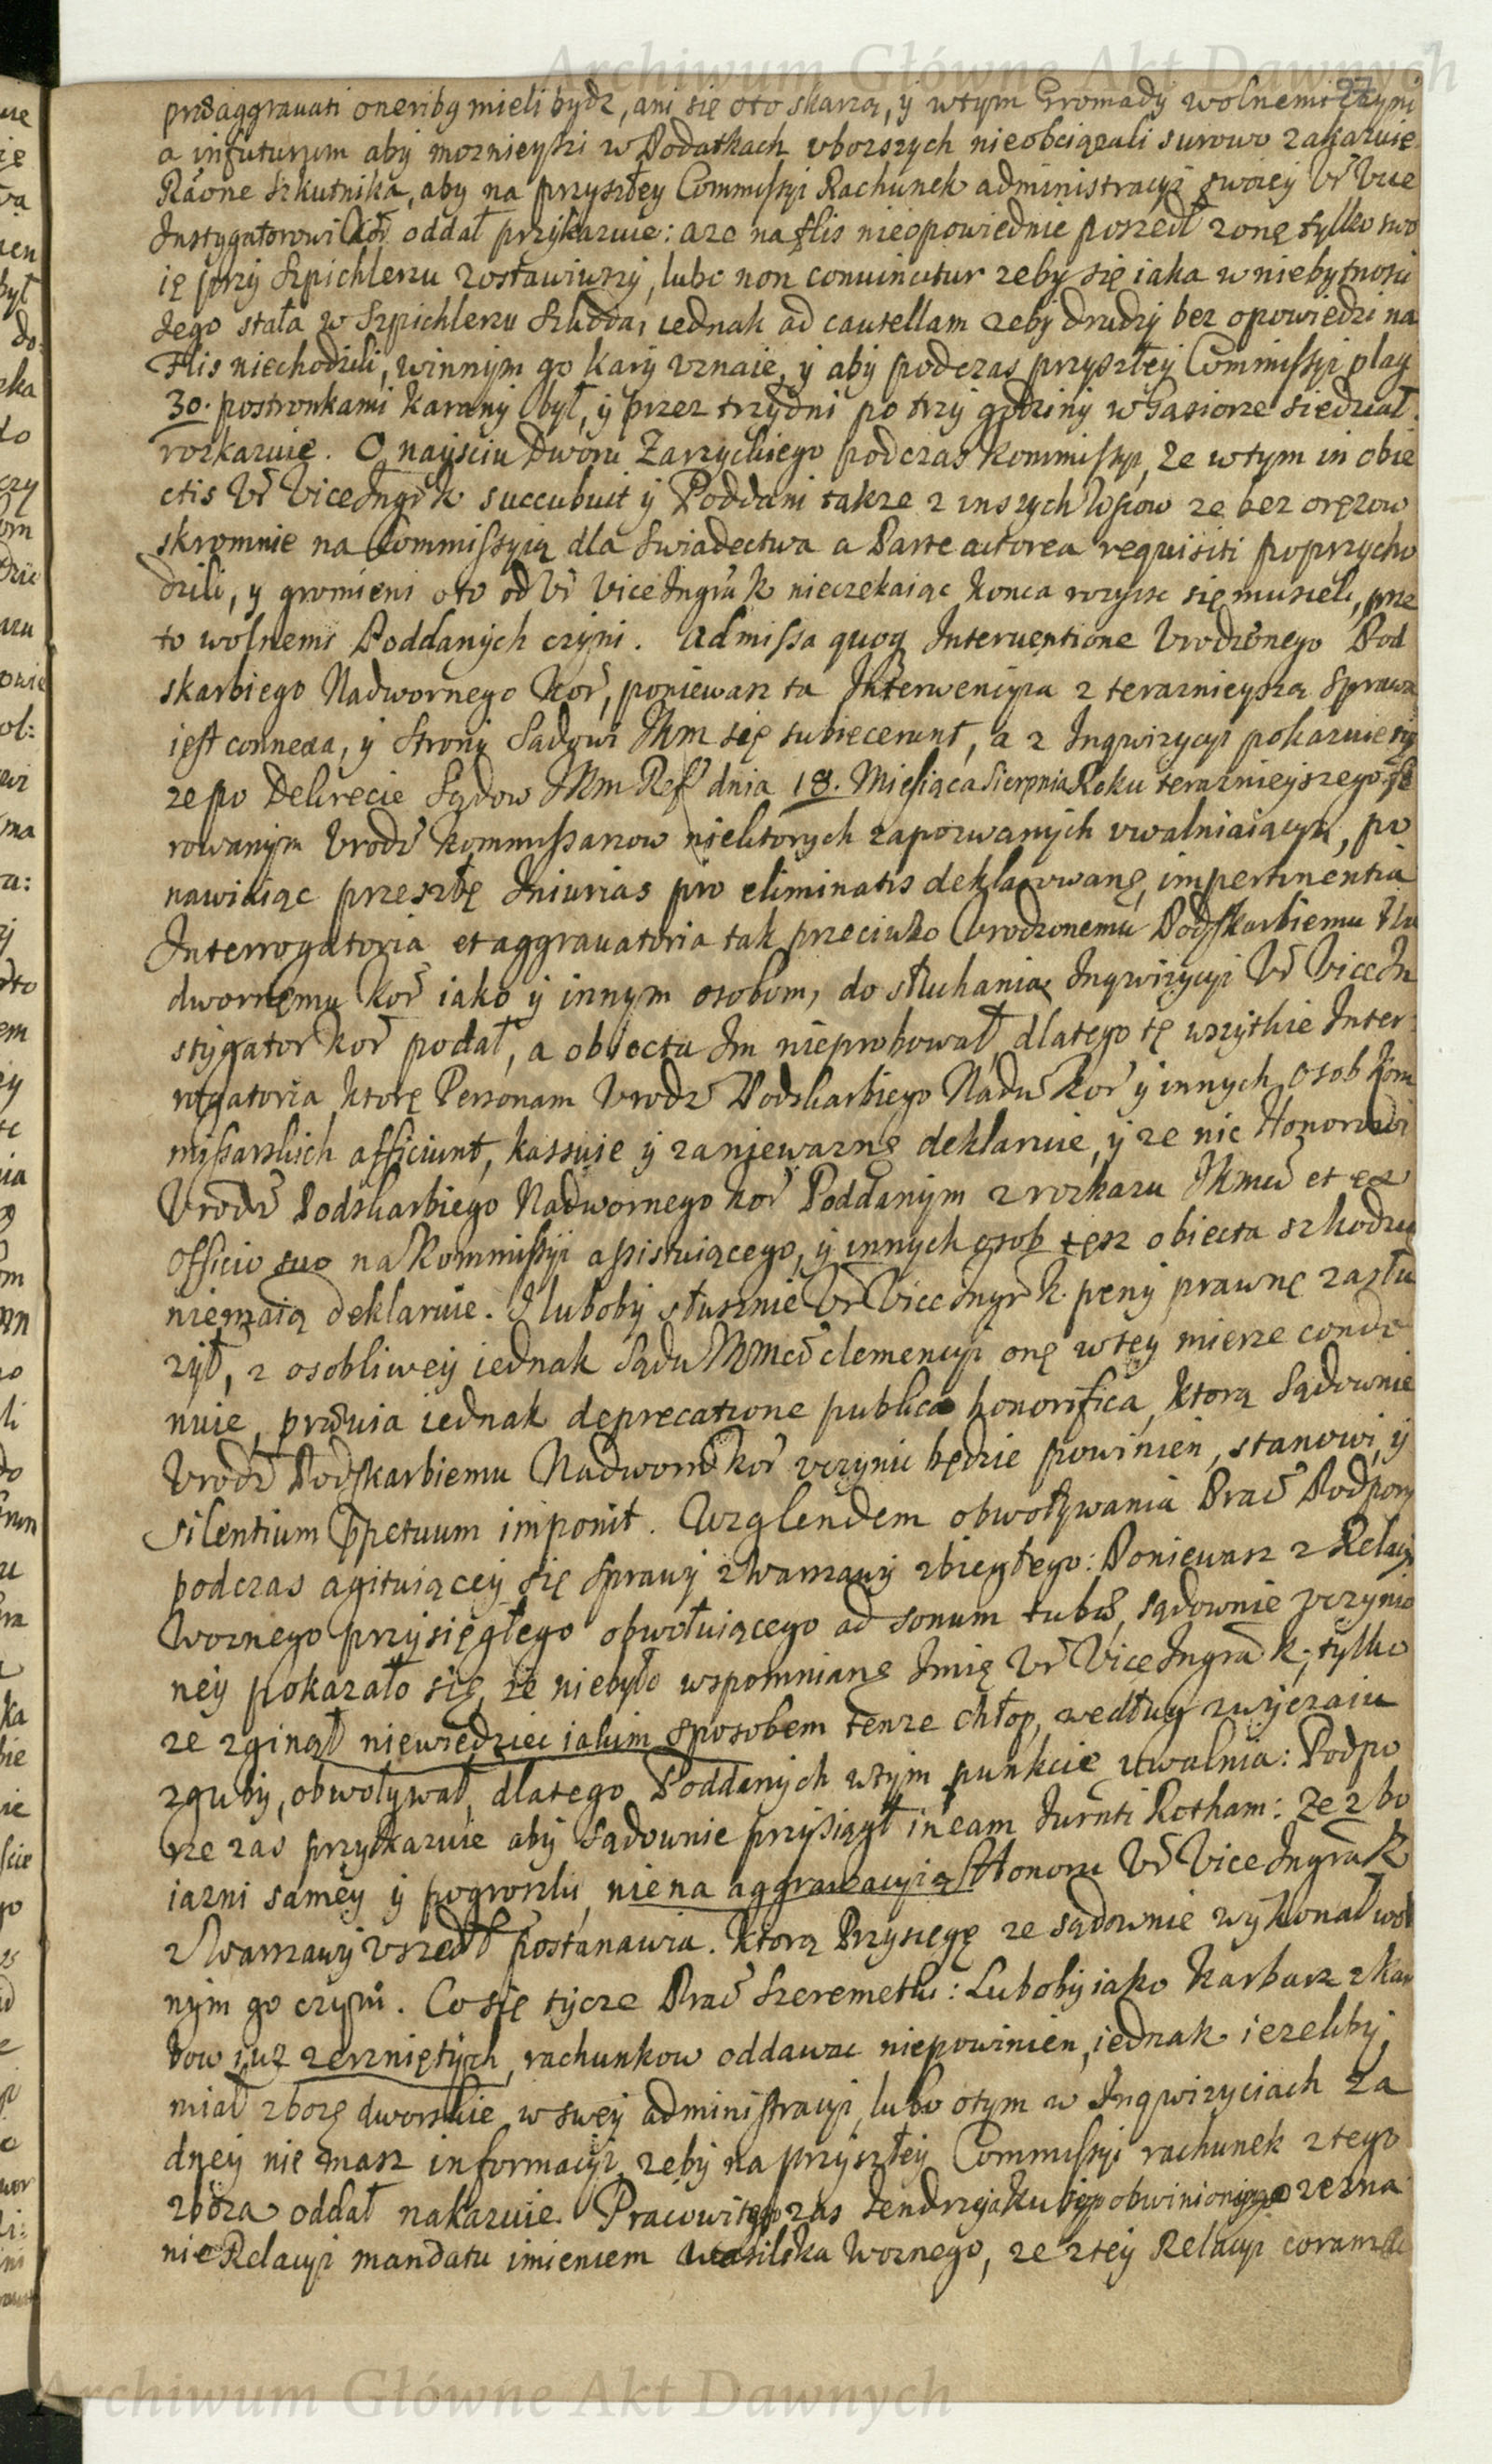 Archiwum Główne Akt Dawnych
97
præaggravati oneriby mieli bydz, ani się oto skarzą, y wtym Gromady wolnemi czyni
a infuturum aby moznieyszi w Podatkach vbozszych nieobciązali surowo zakazuie.
Racone Szkutnika, aby na przyszłey Commissyi Rachunek administracyi swoiey Vr Vice
Instygatorowi Kor oddał przykazuie: aze na flis nieopowiednie poszedł zonę tylko swo
ię przy Szpichlerzu zostawiwszy, lubo non convincitur zeby się iaka w niebytnosci
Jego stała w Szpichlerzu Szkoda, iednak ad cautellam zeby drudzy bez opowiedzi na
Flis niechodzili, winnym go kary vznaie, y aby podczas przyszłey Commissyi plag
30. postronkami karany był, y przez trzydni po trzy godziny w Gąsiorze siedział.
rozkazuie. O nayściu Dworu Zarzyckiego podczas kommissyi, Ze wtym in obie
ctis Vr ViceIngra K succubuit y Poddani takze z inszych Wsiow ze bez oręzow
skromnie na Commissyią dla Swiadectwa a Parte actorea requisiti poprzycho
dzili, y gromieni oto od Vr ViceIngra K nieczekaiąc konca rozyisc się musieli, prze
to wolnemi Poddanych czyni. Admissa quoq Interventione Vrodzonego Pod
skarbiego Nadwornego Kor, poniewasz ta Interwencyia z terazneyszą Sprawą
iest connexa, y Strony Sądowi JKm się subiecerunt, a z Inqwizycyi pokazuie się
ze po Dekrecie Sądow JKm Ref dnia 18. Miesiąca Sierpnia Roku teraznieyszego fe
rowanym Vrodz kommissarzow niektorych zapozwanych vwalniaiącym, po
nawiaiąc przeszłe Iniurias pro eliminatis deklarowane, impertinentia
Interrogatoria et aggravatoria tak przeciwko Vrodzonemu Podskarbiemu Na
dwornemu Kor iako y innym osobom, do słuchania Inqwizycyi Vr ViceIn
stygator Kor podał, a obiecta Im nieprobował, dlatego te wszytkie Inter
rogatoria, ktore Personam Vrodz Podskarbiego Nadw Kor y innych Osob kom
missarskich afficiunt, kassuie y zaniewazne deklaruie, y ze nic Honorowi
Vrodz Podskarbiego Nadwornego Kor Poddanym z rozkazu JKmci et ex
officio suo na Kommissyi assistuiącego, y innych osob tesz obiecta szkodzic
niemaią deklaruie. I luboby słusznie Vr ViceIngr K. peny prawne zasłu
zył, z osobliwey iednak Sądu JKmci clemencyi onę wtey mierze condo
nuie, prævia iednak deprecatione publica honorifica, ktorą Sądownie
Vrodz Podskarbiemu Nadworn Kor vczynic będzie powinien, stanowi, y
silentium perpetuum imponit. Wzglendem obwoływania Prac Podpory
podczas agituiącey się Sprawy z Warszawy zbiegłego: Poniewasz z Relacyi
Woznego przysięgłego obwołuiącego ad sonum tubæ, sądownie vczynio
ney pokazało się, ze niebyło wspomniane Imię Vr ViceIngra K; tylko
ze zginął niewiedziec iakim sposobem tenze chłop, według zwyczaiu
zguby, obwoływał, dlatego Poddanych wtym punkcie vwalnia: Podpo
rze zas przykazuie aby sądownie przysiągł in eam Iurnti Rotham: Ze z bo
iazni samey y pogrozki, nie na aggrawacyią Honoru Vr ViceIngra K
z Warszawy vszedł postanawia. ktorą Przysięgę ze sądownie wykonał wol
nym go czyni. Co się tycze Prac Szeremetki: Luboby iako Karbarz z kar
bow iuz zerzniętych, rachunkow oddawac niepowinien, iednak iezeliby
miał zboze dworskie w swey administracyi, lubo otym w Inqwizyciach za
dney nie masz informacyi, zeby na przyszłey Commissyi rachunek z tego
zboza oddał nakazuie. Pracowitego zas Jendrzeia Kubię obwinionego zezna
nie Relacyi mandatu imieniem Wasilka Woznego, ze z tey Relacyi coram
Archiwum Główne Akt Dawnych